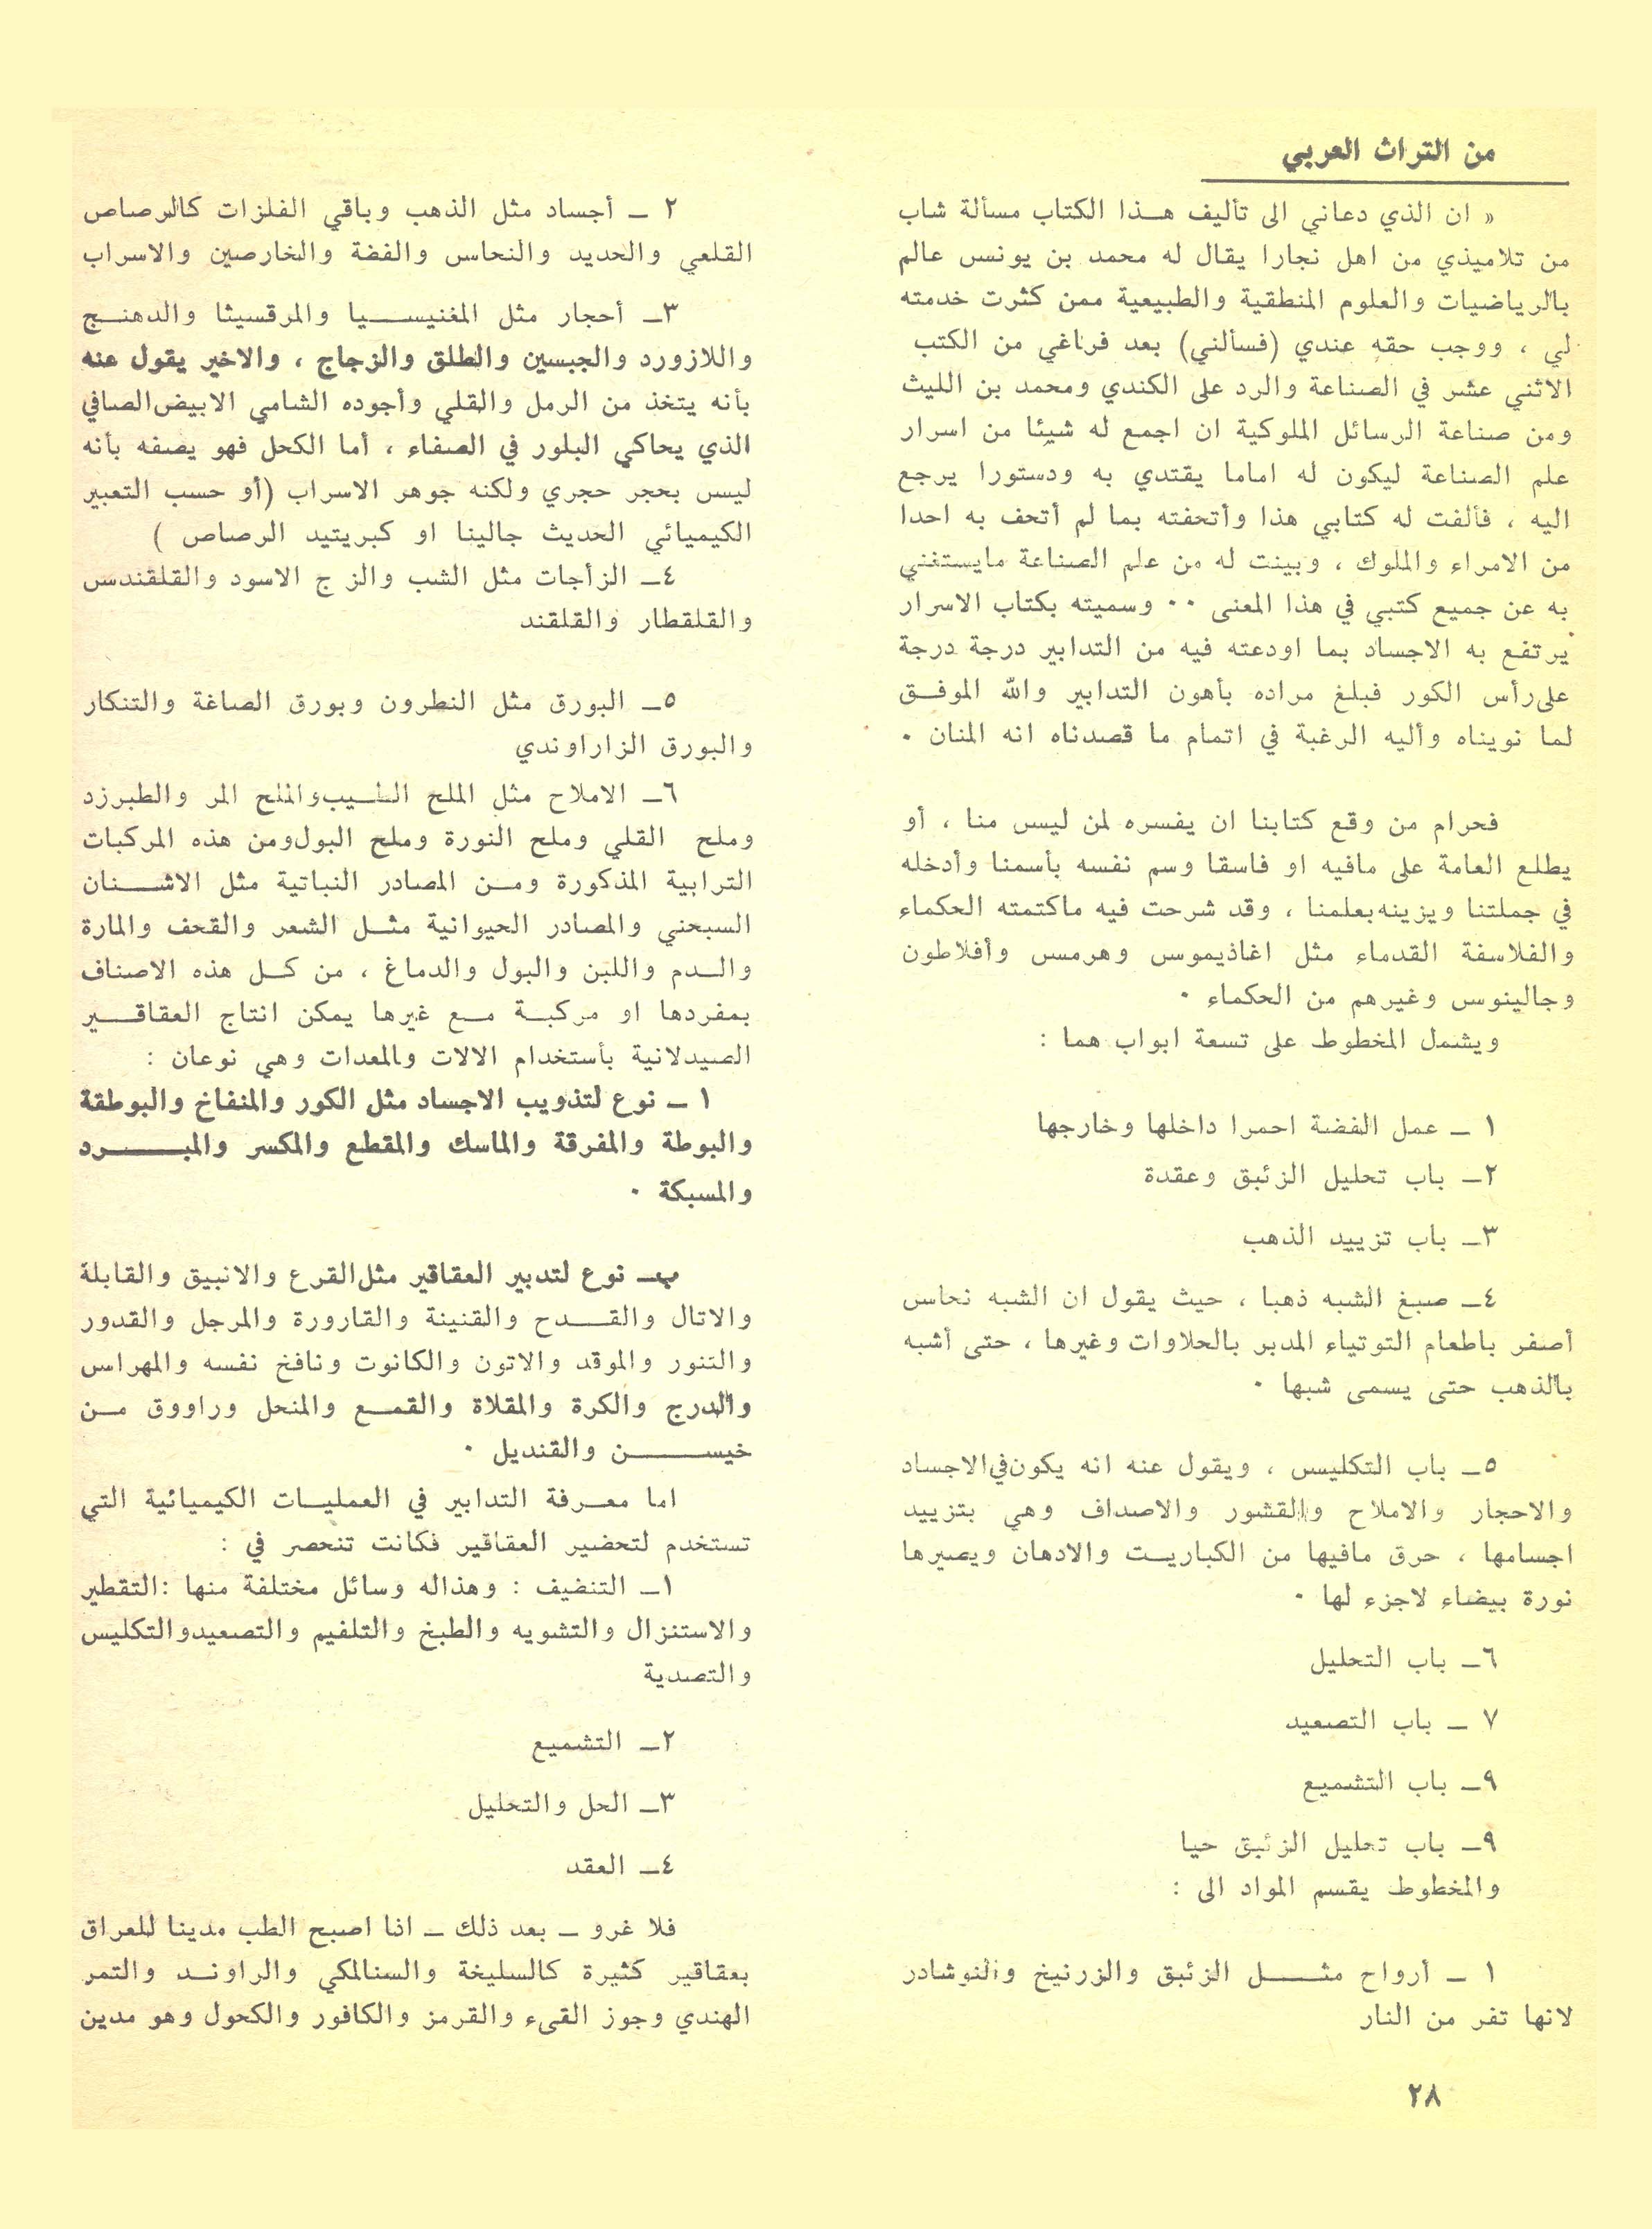 من التراث العربي
« ان الذي دعاني الى تأليف هـذا الكتاب مسألة شاب
من تلاميذي من اهل نجارا يقال له محمد بن يونس عالم
بالرياضيات والعلوم المنطقية والطبيعية ممن كثرت خدمته
لي ، ووجب حقه عندي (فسألني) بعد فراغي من الكتب
الاثني عشر في الصناعة والرد على الكندي ومحمد بن الليث
ومن صناعة الرسائل الملوكية ان اجمع له شيئا من اسرار
علم الصناعة ليكون له اماما يقتدي به ودستورا يرجع
اليه ، فألفت له كتابي هذا وأتحفته بما لم أتحف به احدا
من الامراء والملوك ، وبينت له من علم الصناعة مايستغني
به عن جميع كتبي في هذا المعنى ٠٠ وسميته بكتاب الاسرار
يرتفع به الاجساد بما اودعته فيه من التدابير درجة درجة
على رأس الكور فبلغ مراده بأهون التدابير والله الموفـق
لما نويناه وأليه الرغبة في اتمام ما قصدناه انه المنان ٠
فحرام من وقع كتابنا ان يفسره لمن ليس منا ، أو
يطلع العامة على مافيه او فاسقا وسم نفسه بأسمنا وأدخله
في جملتنا ويزينه بعلمنا ، وقد شرحت فيه ماكتمته الحكماء
والفلاسفة القدماء مثل اغاذيموس وهرمس وأفلاطون
وجالينوس وغيرهم من الحكماء ٠
ويشمل المخطوط على تسعة ابواب هما :
١ ـ عمل الفضة احمرا داخلها وخارجها
٢ـ باب تحليل الزئبق وعقدة
٣ـ باب تزييد الذهب
٤ـ صبغ الشبه ذهبا ، حيث يقول ان الشبه نحاس
أصفر باطعام التوتياء المدبر بالحلاوات وغيرها ، حتى أشبه
بالذهب حتى يسمى شبها ٠
٥ـ باب التكليس ، ويقول عنه انه يكون في الاجساد
والاحجار والاملاح والقشور والاصداف وهي بتزييد
اجسامها ، حرق مافيها من الكباريـت والادهان ويصيرها
نورة بيضاء لاجزء لها ٠
٦ـ باب التحليل
٧ ـ باب التصعيد
٩ـ باب التشميع
٩ـ باب تحليل الزئبق حيا
والمخطوط يقسم المواد الى :
١ ـ أرواح مثـــل الزئبق والزرنيخ والنوشادر
لانها تفر من النار
٢ ـ أجساد مثل الذهب وباقي الفلزات كالرصاص
القلعي والحديد والنحاس والفضة والخارصين والاسراب
٣ـ أحجار مثل المغنيســيا والمرقسيثا والدهنـج
واللازورد والجبسين والطلق والزجاج ، والاخير يقول عنه
بأنه يتخذ من الرمل والقلي وأجوده الشامي الابيض الصافي
الذي يحاكي البلور في الصفاء ، أما الكحل فهو يصفه بأنه
ليس بحجر حجري ولكنه جوهر الاسراب (أو حسب التعبير
الكيميائي الحديث جالينا او كبريتيد الرصاص )
٤ـ الزأجات مثل الشب والز ج الاسود والقلقندس
والقلقطار والقلقند
٥ـ البورق مثل النطرون وبورق الصاغة والتنكار
والبورق الزاراوندي
٦ـ الاملاح مثل الملح الطـيب والملح المر والطبرزد
وملح القلي وملح النورة وملح البول ومن هذه المركبات
الترابية المذكورة ومـن المصادر النباتية مثل الاشــنان
السبحني والمصادر الحيوانية مثـل الشعر والقحف والمارة
والـدم واللبن والبول والدماغ ، من كـل هذه الاصناف
بمفردها او مركبـة مـع غيرها يمكن انتاج العقاقـير
الصيدلانية بأستخدام الالات والمعدات وهي نوعان :
١ ـ نوع لتذويب الاجساد مثل الكور والمنفاخ والبوطقة
والبوطة والمفرقة والماسك والمقطع والمكسر والمبــــرد
والمسبكة ٠
بـ نوع لتدبير العقاقير مثل القرع والانبيق والقابلة
والاتال والقـــدح والقنينة والقارورة والمرجل والقدور
والتنور والموقد والاتون والكانوت ونافخ نفسه والمهراس
والدرج والكرة والمقلاة والقمـع والمنحل وراووق مـن
خيســـــن والقنديل ٠
اما معـرفة التدابير في العمليـات الكيميائية التي
تستخدم لتحضير العقاقير فكانت تنحصر في :
١ـ التنضيف : وهذاله وسائل مختلفة منها :التقطير
والاستنزال والتشويه والطبخ والتلفيم والتصعيد والتكليس
والتصدية
٢ـ التشميع
٣ـ الحل والتحليل
٤ـ العقد
فلا غرو ـ بعد ذلك ـ اذا اصبح الطب مدينا للعراق
بعقاقير كثيرة كالسليخة والسنالمكي والراونـد والتمر
الهندي وجوز القيء والقرمز والكافور والكحول وهو مدين
٢٨